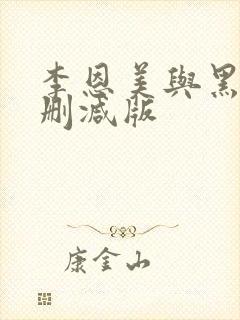 李恩美與黑
刪減版
康金山